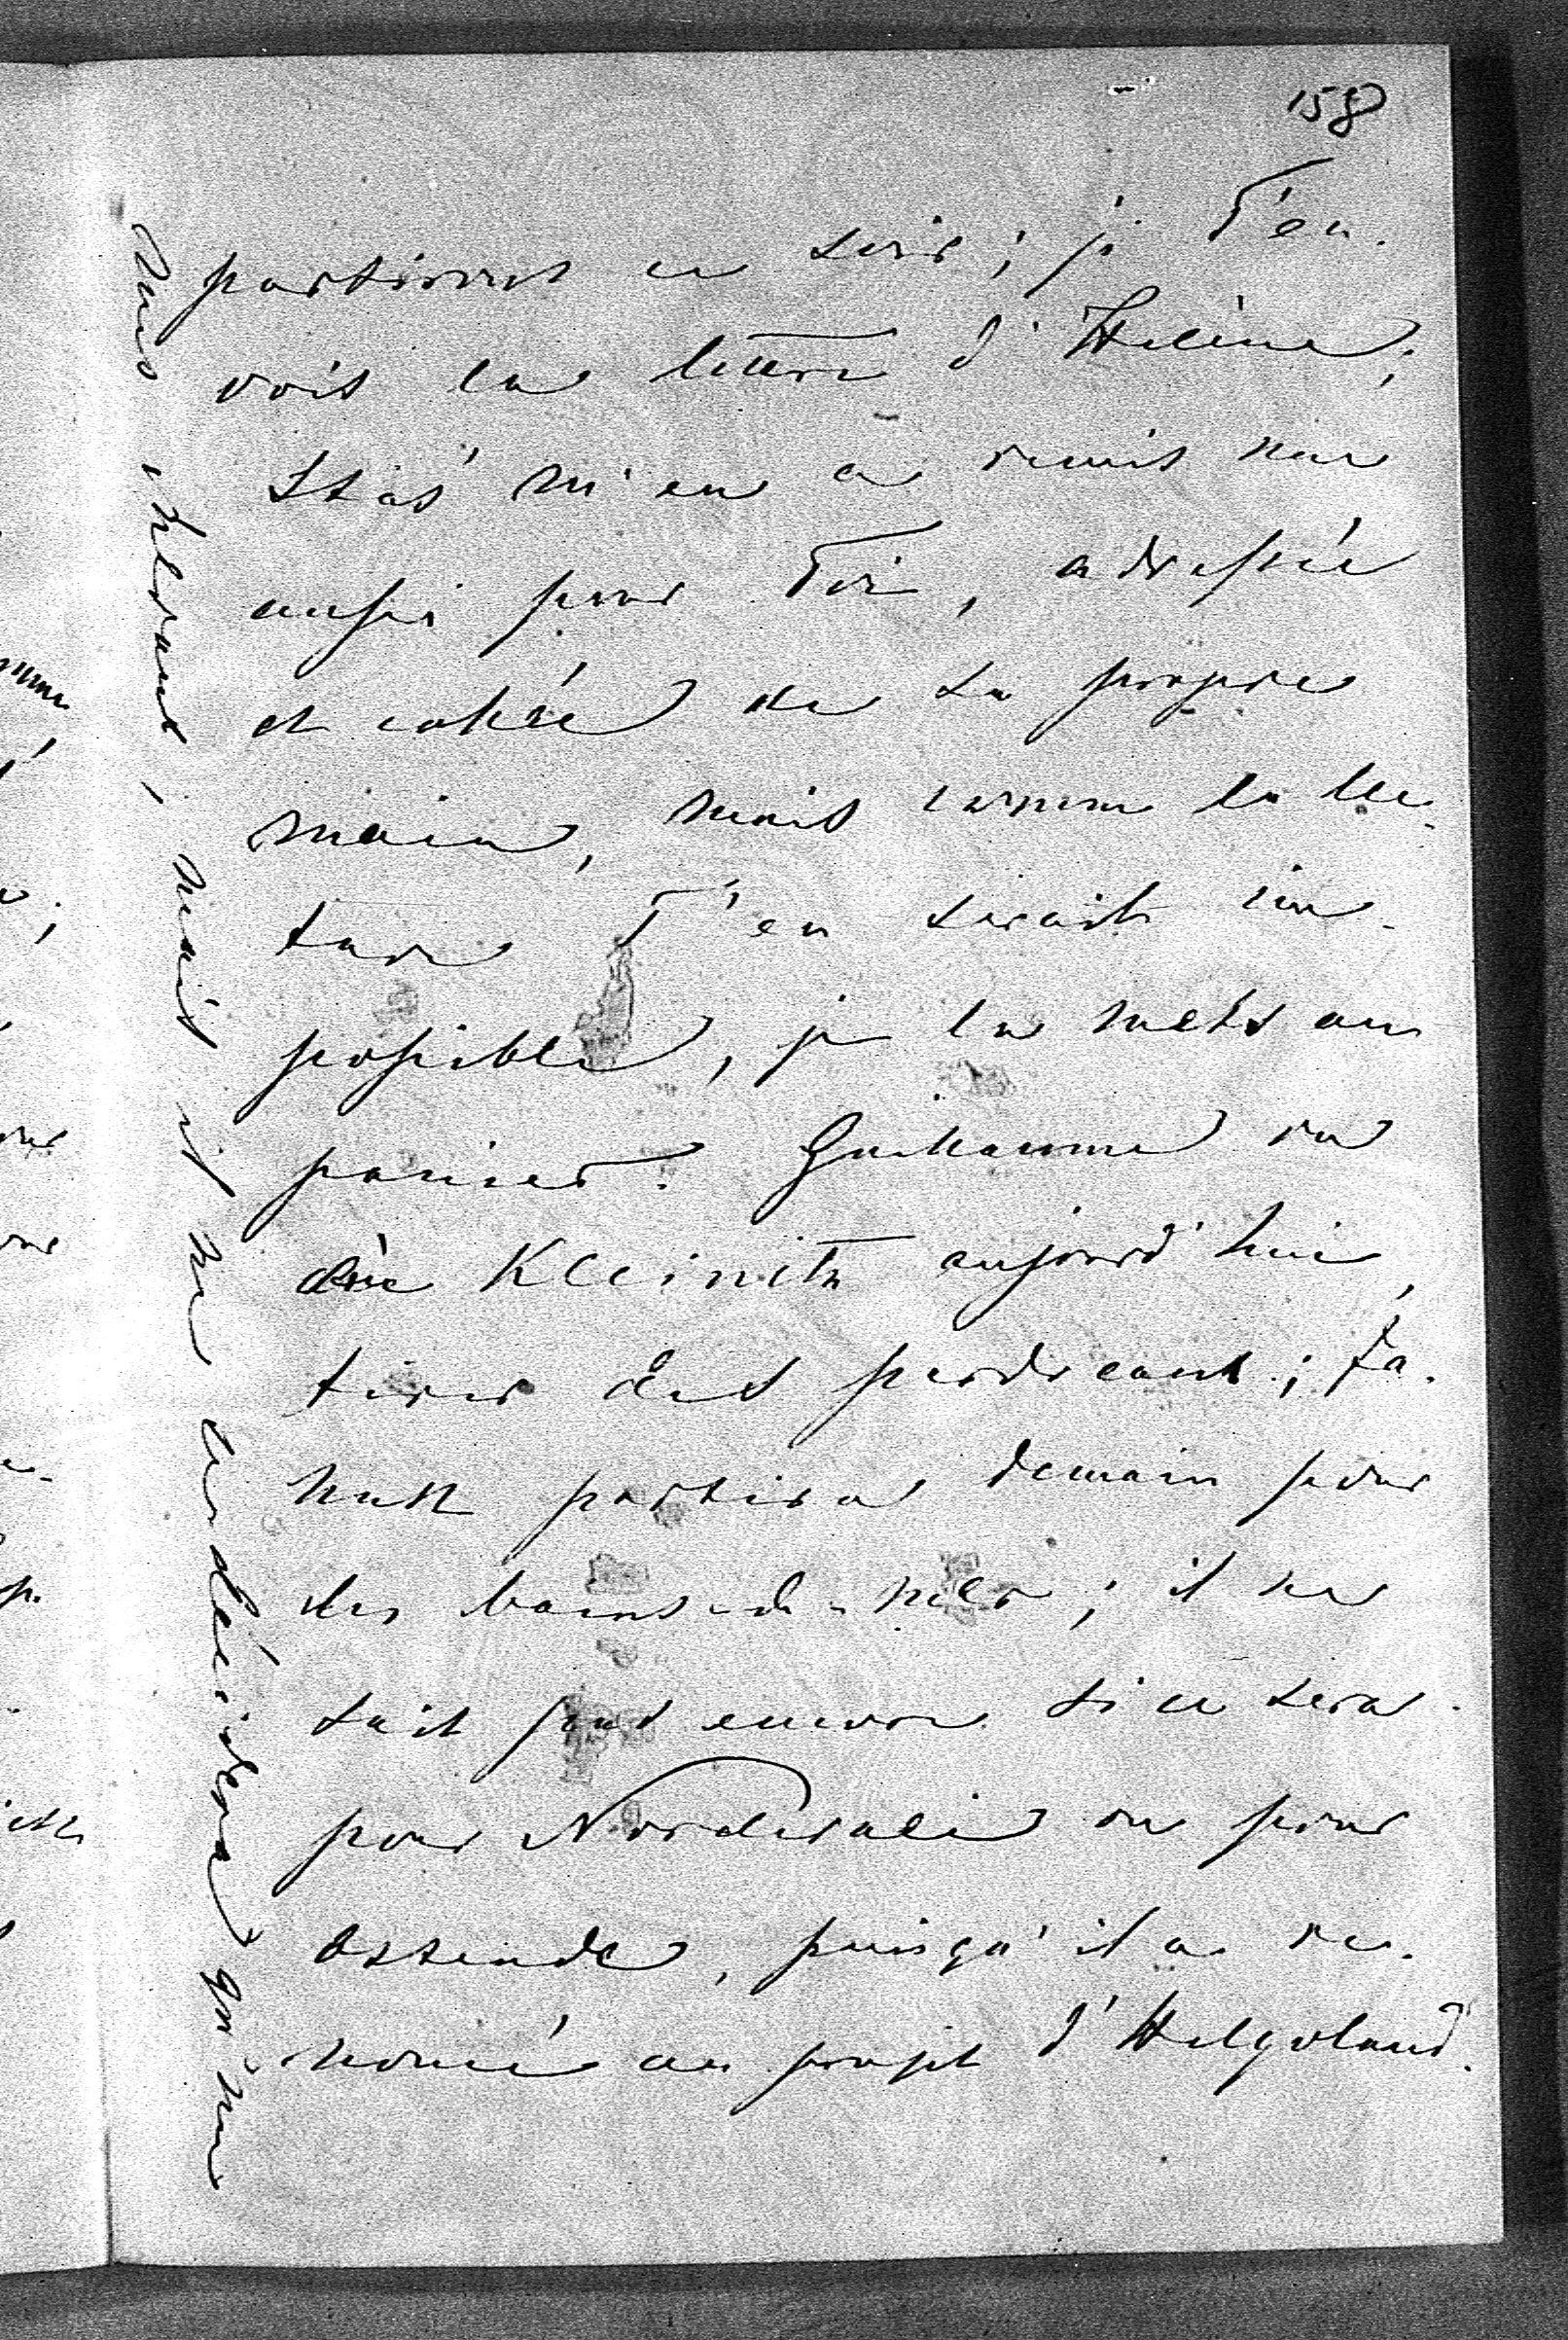 158
partiront ce soir; je T'en-
vois la lettre d'Hélène;
Stas' m'en a remis une
aussi pour Toi, adressée
et cahée de sa propre
main, mais comme la lec-
ture T'en serait im-
possible, je la mets au
panier. Guillaume va
à Kleinitz aujourd'hui,
tirer des perdreaux;
partira demain pour
les bains-de-mer; il ne
sait pas encore si ce sera
pour Norderalei ou pour
Ostende, puisqu'il a re-
noncé au projet d'Helgoland.
mais il ne se décidera qu'un